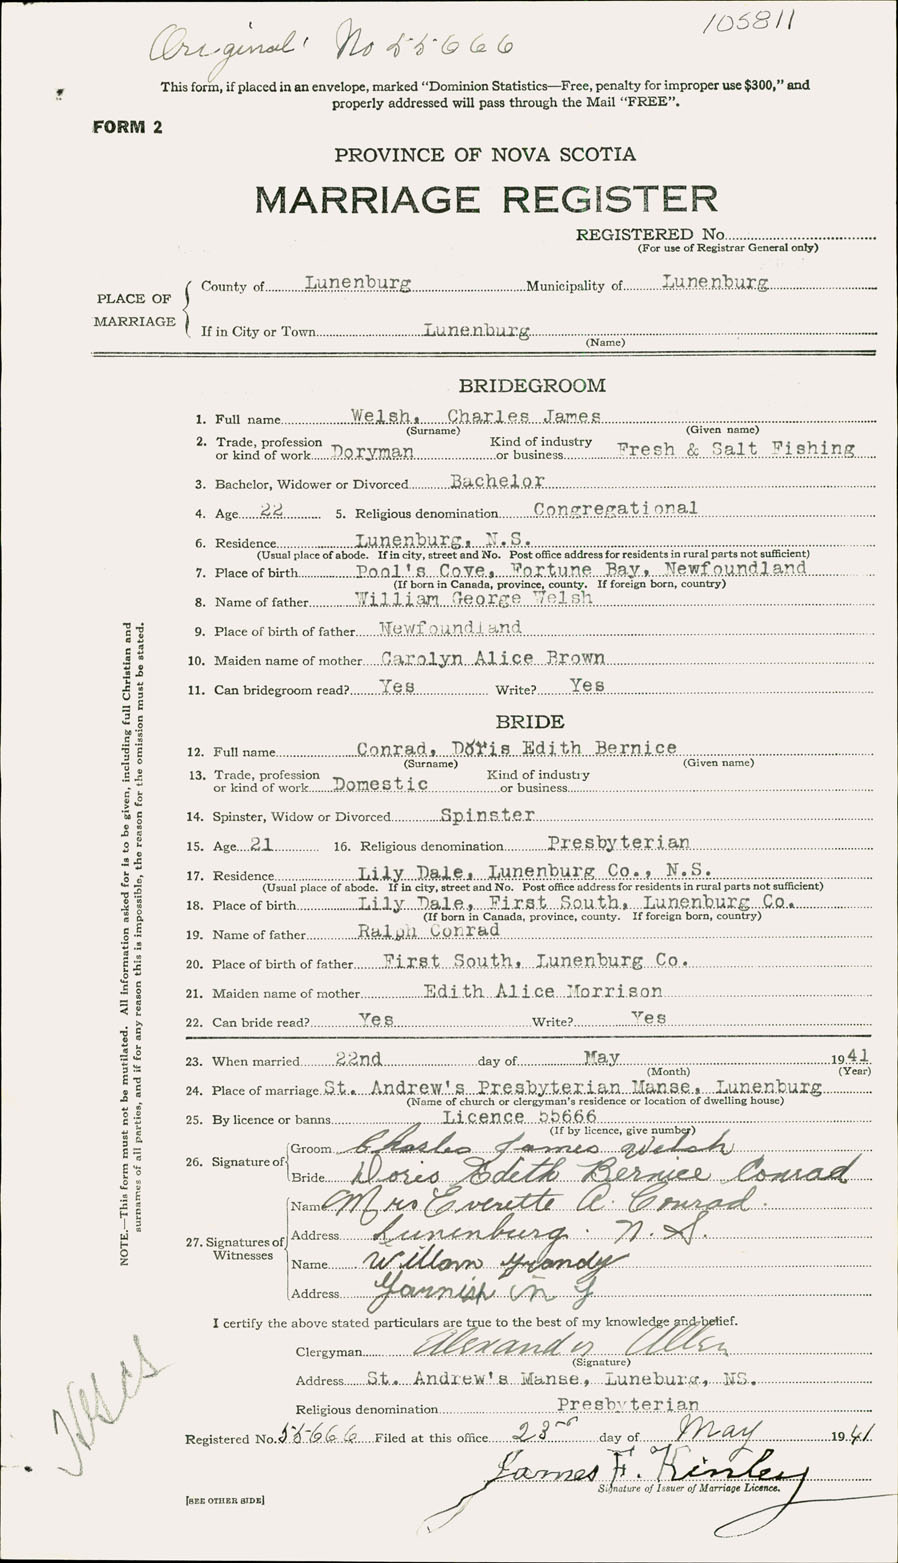 105811
Original No 55666
This form, if placed in an envelope, marked “Dominion Statistics—Free, penalty for improper use $300,” and
properly addressed will pass through the Mail “FREE”.
FORM 2
PROVINCE OF NOVA SCOTIA
MARRIAGE REGISTER
REGISTERED No.
(For use of Registrar General only)
PLACE OF MARRIAGE
County of Lunenburg Municipality of Lunenburg
If in City or Town Lunenburg
(Name)
BRIDEGROOM
1. Full name Welsh, Charles James
(Surname) (Given name)
2. Trade, profession or kind of work Doryman Kind of industry or business Fresh & Salt Fishing
3. Bachelor, Widower or Divorced Bachelor
4. Age 22 5. Religious denomination Congregational
6. Residence Lunenburg, N.S.
(Usual place of abode. If in city, street and No. Post office address for residents in rural parts not sufficient)
7. Place of birth Pool's Cove, Fortune Bay, Newfoundland
(If born in Canada, province, county. If foreign born, country)
8. Name of father William George Welsh
9. Place of birth of father Newfoundland
10. Maiden name of mother Carolyn Alice Brown
11. Can bridegroom read? Yes Write? Yes
BRIDE
12. Full name Conrad, Doris Edith Bernice
(Surname) (Given name)
13. Trade, profession or kind of work Domestic Kind of industry or business
14. Spinster, Widow or Divorced Spinster
15. Age 21 16. Religious denomination Presbyterian
17. Residence Lily Dale, Lunenburg Co., N.S.
(Usual place of abode. If in city, street and No. Post office address for residents in rural parts not sufficient)
18. Place of birth Lily Dale, First South, Lunenburg Co.
(If born in Canada, province, county. If foreign born, country)
19. Name of father Ralph Conrad
20. Place of birth of father First South, Lunenburg Co.
21. Maiden name of mother Edith Alice Morrison
22. Can bride read? Yes Write? Yes
23. When married 22nd day of May 1941
(Month) (Year)
24. Place of marriage St. Andrew's Presbyterian Manse, Lunenburg
(Name of church or clergyman's residence or location of dwelling house)
25. By licence or banns Licence 55666
(If by licence, give number)
26. Signature of
Groom Charles James Welsh
Bride Doris Edith Bernice Conrad
27. Signatures of Witnesses
Name Mrs Everette A. Conrad.
Address Lunenburg. N. S.
Name William Grandy
Address Garnish
I certify the above stated particulars are true to the best of my knowledge and belief.
Clergyman Alexander Allen
(Signature)
Address St. Andrew's Manse, Luneburg, NS.
Religious denomination Presbyterian
Registered No. 55666 Filed at this office 23rd day of May 1941
James F. Kinley
Signature of Issuer of Marriage Licence.
[SEE OTHER SIDE]
NOTE.—This form must not be mutilated. All information asked for is to be given, including full Christian and
surnames of all parties, and if for any reason this is impossible, the reason for the omission must be stated.